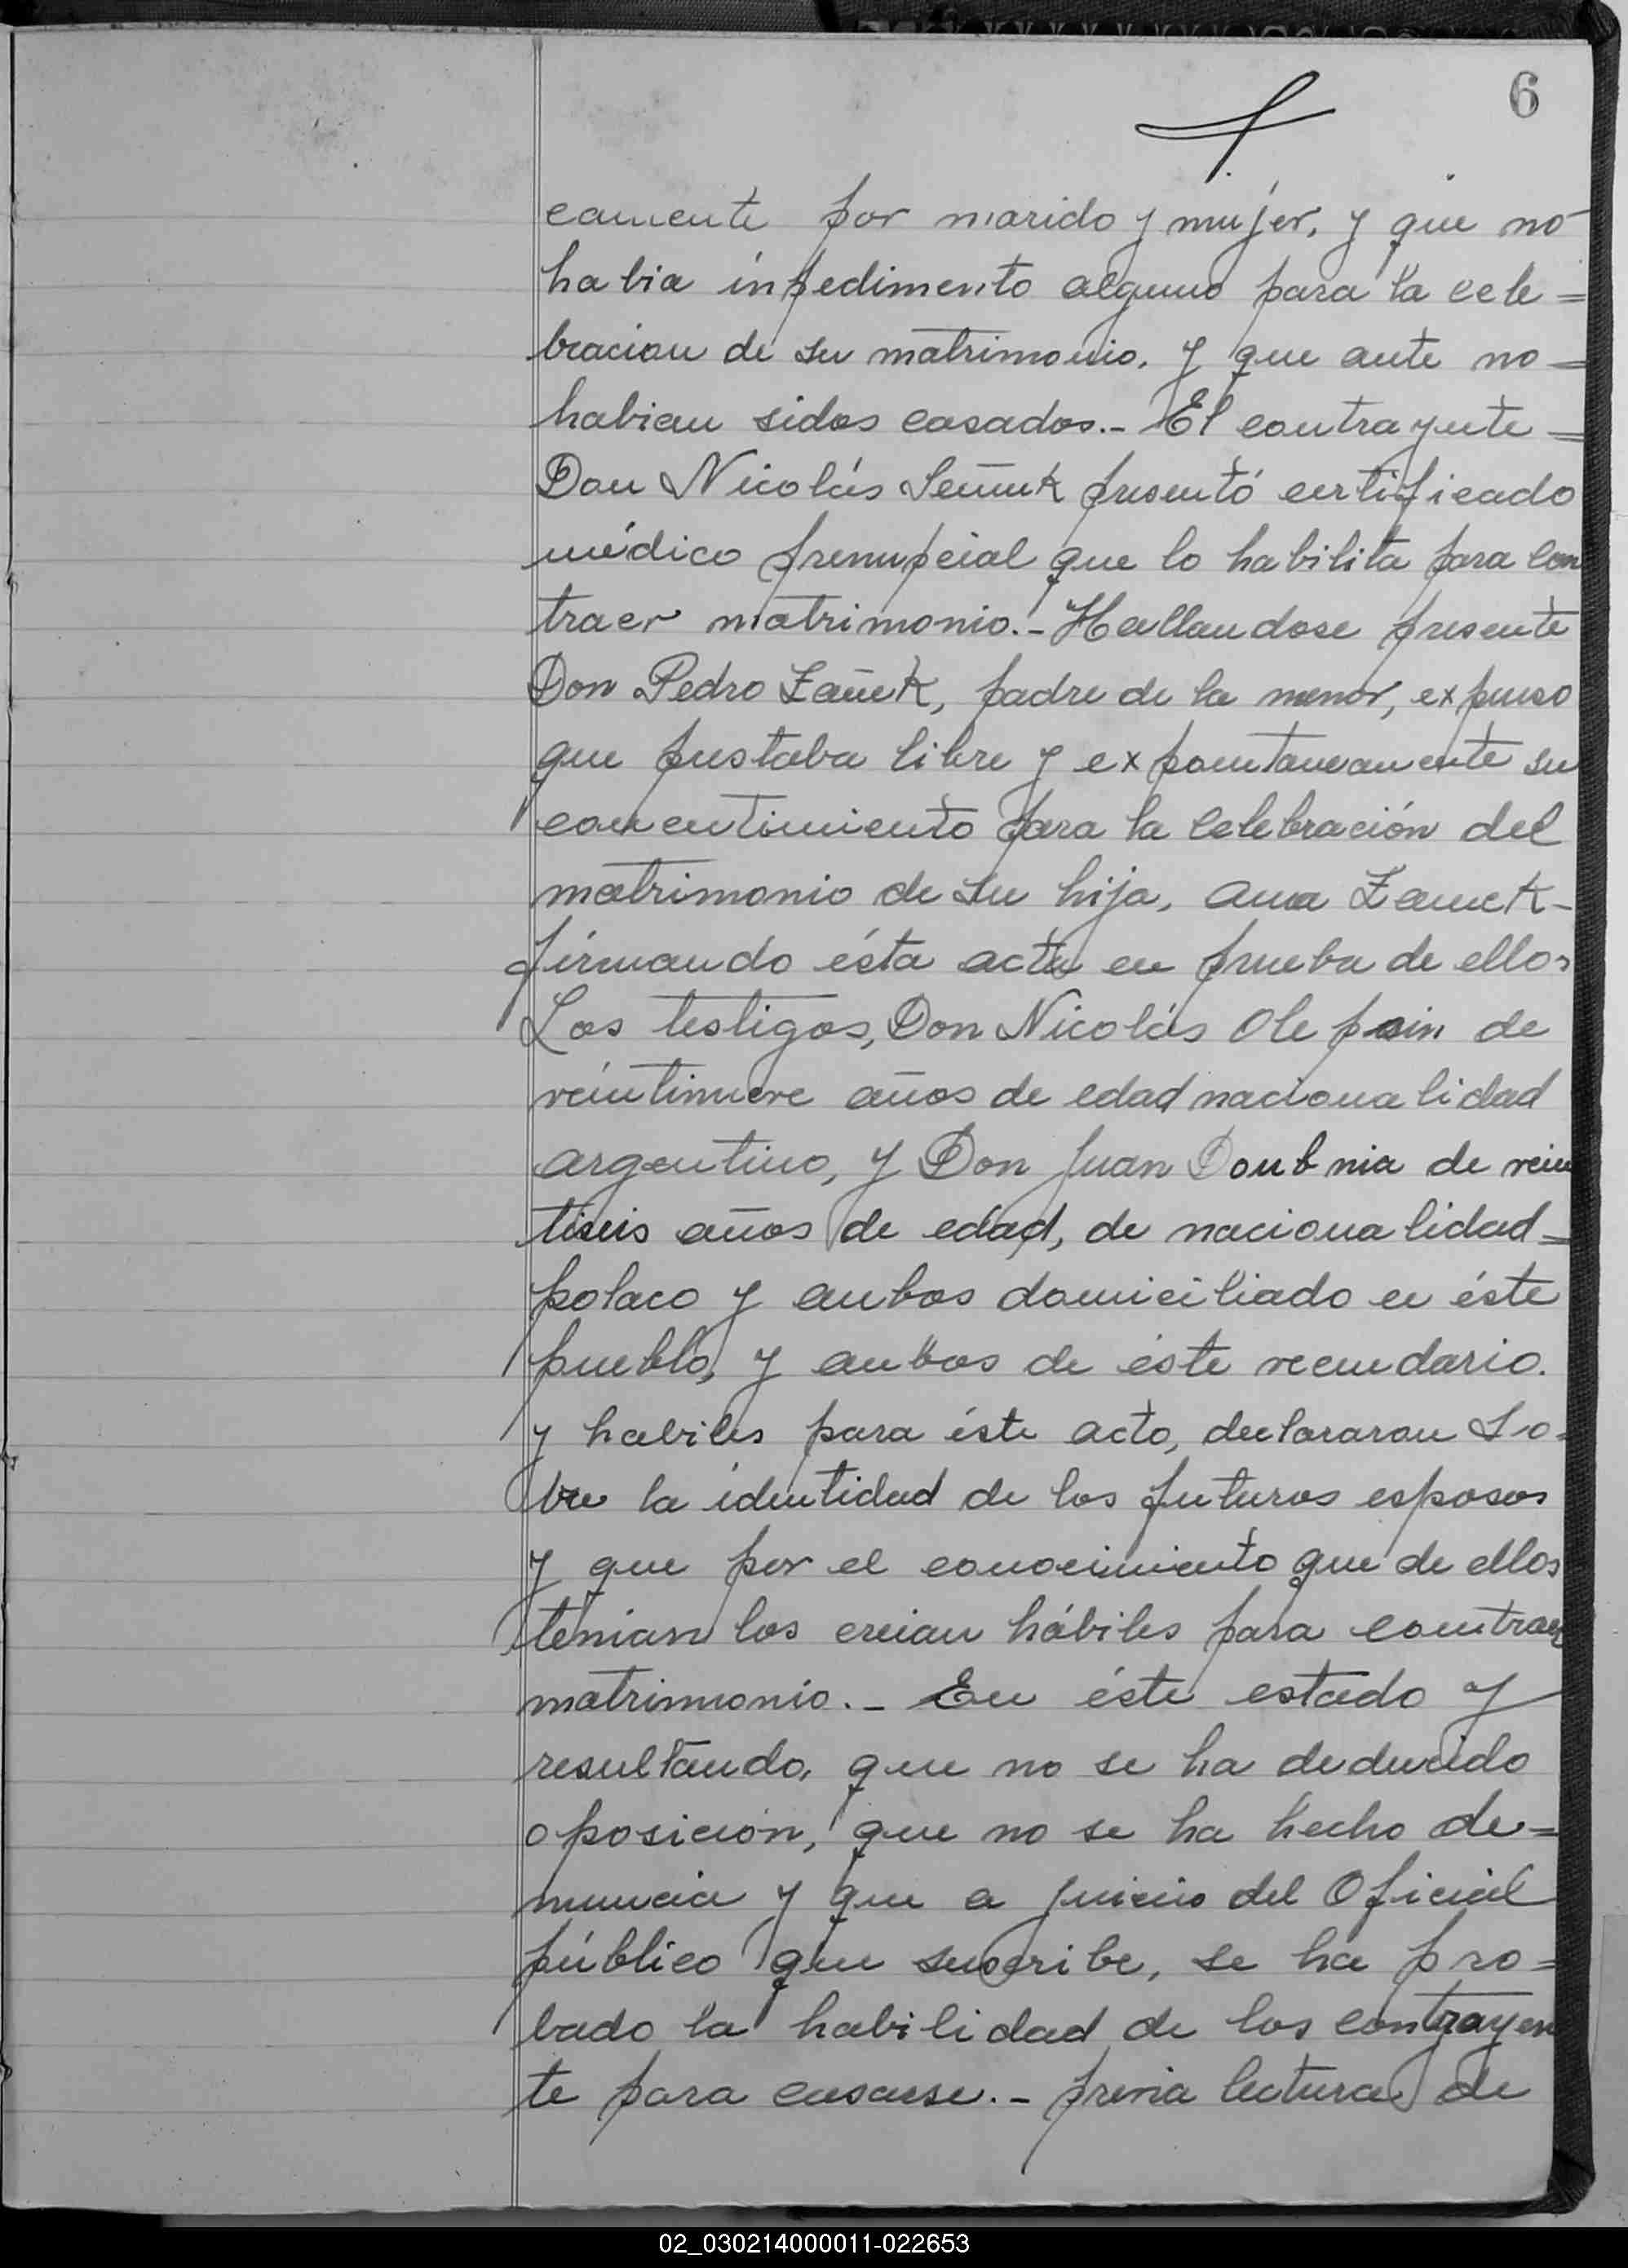 6
camente por marido y mujer, y que no
habia inpedimento alguno para la cele=
bracion de su matrimonio. y que ante no=
habian sidos casados.- El contrayente=
Don Nicolás presentó certificado
médico prenupcial que lo habilita para con
traer matrimonio.- Hallandose presente
Don Pedro Zañek, padre de la menor, expuso
que pustaba libre y expontaneamente su
concentimiento para la celebración del
matrimonio de su hija, Ana Zanek-
firmando ésta acta en prueba de ello-
Los testigos, Don Nicolás Olepain de
veintinueve años de edad nacionalidad
argentino, y Don Juan Doubnia de vein
tiseis años de edad, de nacionalidad=
polaco y anbos domiciliado en éste
pueblo, y anbos de éste vecindario.
y habiles para éste acto, declararon So=
bre la identidad de los futuros esposos
y que por el conocimiento que de ellos
tenian los creian hábiles para contraer
matrimonio.- En éste estado y
resultando, que no se ha deducido
oposición, que no se ha hecho de=
nuncia y que a juicio del Oficial
público que suscribe, se ha pro=
bado la habilidad de los contrayen
te para casarse.- previa lectura de
02_030214000011-022653